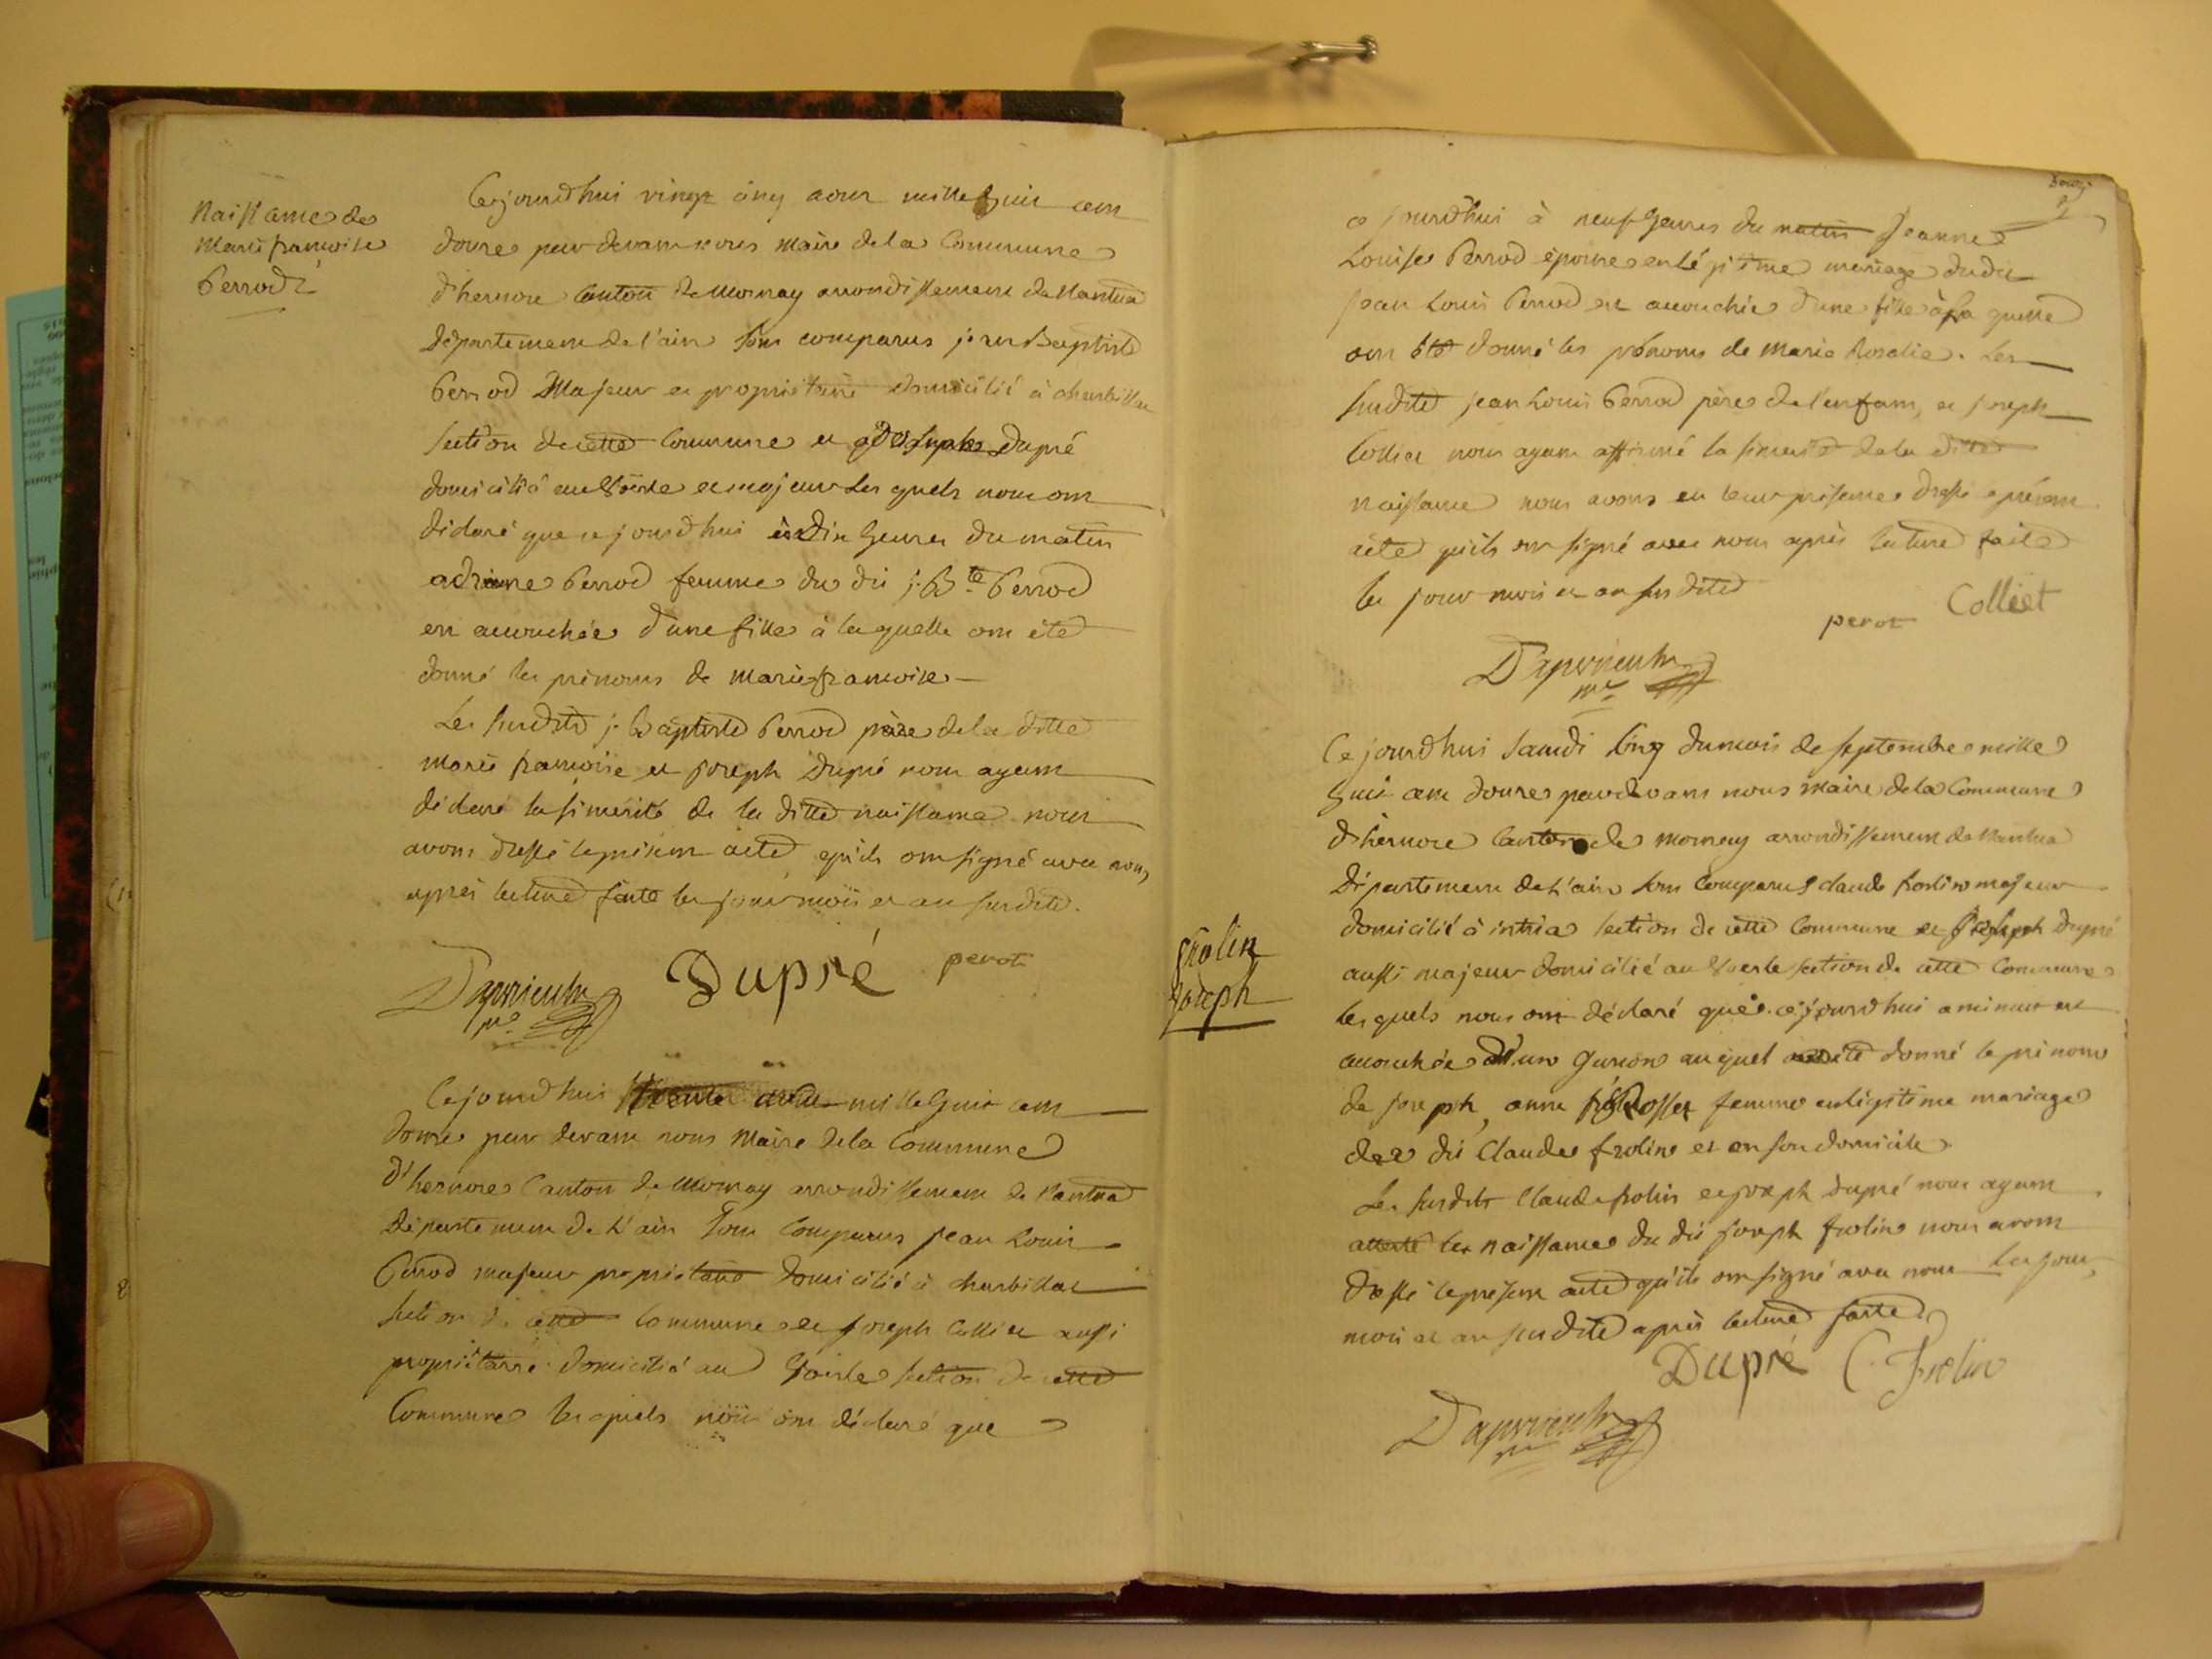 Naissance de
Marie francoise
Perrod
Cejourdhui vingt cinq aout mille huit cent
douze par devant nous Maire dela Commune
d'hernore Canton de Mornay arrondissement de Nantua
Département de l'ain sont comparus jean Baptiste
Perrod Majeur et propriétaire domicilié à charbillat
section de cette Commune et joseph Dupré
domicilié au Voerle et majeur Les quels nous ont
déclaré que cejourdhui à Dix heures du matin
adriane Perrod femme du dit j. Bte Perrod
est accouchée d'une fille à laquelle ont été
donné les prénoms de marie francoise
Les susdits j. Baptiste Perrod père de la ditte
marie francoise et joseph Dupré nous ayant
déclaré la sincérité de la ditte naissance nous
avons dressé le present acte qu'ils ont signé avec nous
après lecture faite les jour mois et an susdits.
Dupré perot
Cejourdhui trente aout mille huit cent
douze par devant nous Maire dela Commune
d'hernore Canton de Mornay arrondissement de Nantua
Département de L'ain sont comparus jean Louis
Perrod majeur propriétaire domicilié à charbillat
section de cette Commune et joseph Colliet aussi
propriétaire domicilié au Voerle section de cette
Commune les quels nous ont déclaré que
ce jourdhui à neuf heures du matin Jeanne
Louise Perrod épouse en légitime mariage dudit
jean Louis Perrod est accouchée d'une fille à la quelle
ont été donné les prénoms de Marie Rosalie. Les
susdits jean Louis Perrod père de l'enfant, et joseph
Colliet nous ayant affirmé la sincérité de la ditte
naissance nous avons en leur présence dressé le présent
acte qu'ils ont signé avec nous après lecture faite
les jour mois et an susdits
perot Colliet
frolin
Joseph
Ce jourdhui samdi cinq du mois de septembre mille
huit cent douze par devant nous Maire dela Commune
d'hernore Canton de mornay arrondissement de Nantua
Département de L'ain sont comparus claude frolin majeur
domicilié à intria section de cette Commune et joseph Dupré
aussi majeur domicilié au Voerle section de cette Commune
les quels nous ont déclaré que cejourdhui a minuit est
accouchée d'un garcon auquel a été donné le prénom
de joseph, anne femme en légitime mariage
du dit Claude frolin et en son domicile
Les susdits Claude frolin et joseph Dupré nous ayant
attesté la naissance du dit joseph frolin nous avons
dressé le present acte qu'ils ont signé avec nous les jour,
mois et an susdits après lecture faite
Dupré C. Frolin